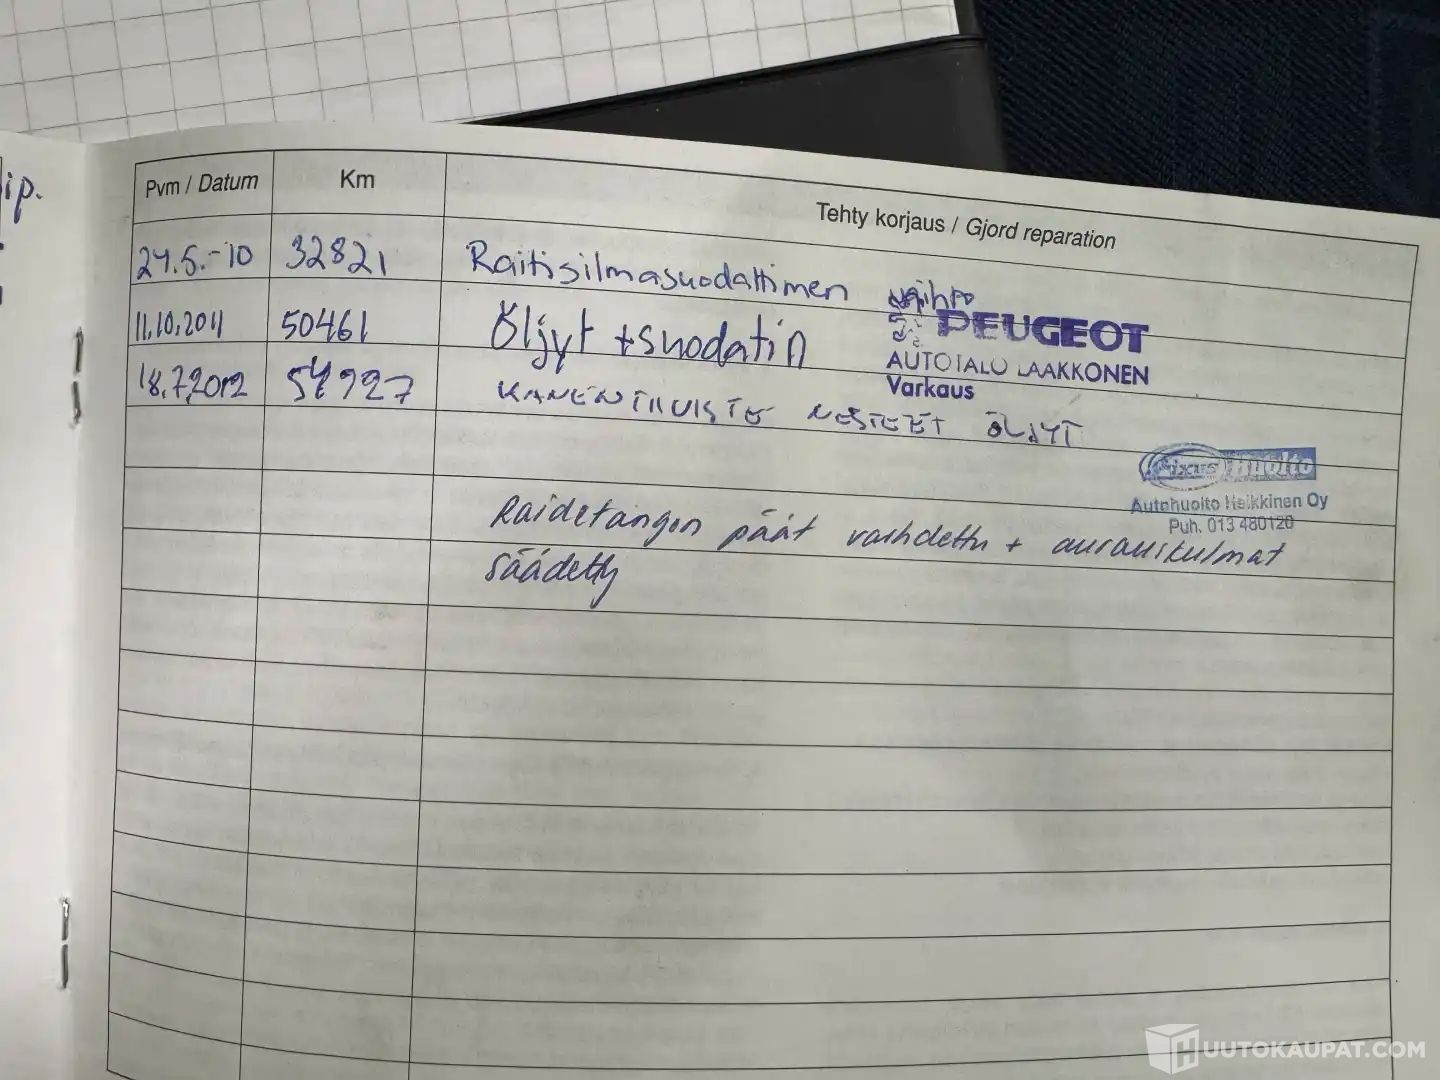 ip.
Pvm / Datum Km Tehty korjaus / Gjord reparation
24.5.-10 32821 Raitisilmasuodattimen vaihto
11.10.2011 50461 Öljyt + suodatin
PEUGEOT
AUTOTALO LAAKKONEN
Varkaus
18.7.2012 54927 KANENTIIVISTE NESTEET ÖLJYT
Fixus Huolto
Autohuolto Heikkinen Oy
Puh. 013 480120
Raidetangon päät vaihdettu + aurauskulmat
säädetty
HUUTOKAUPAT.COM